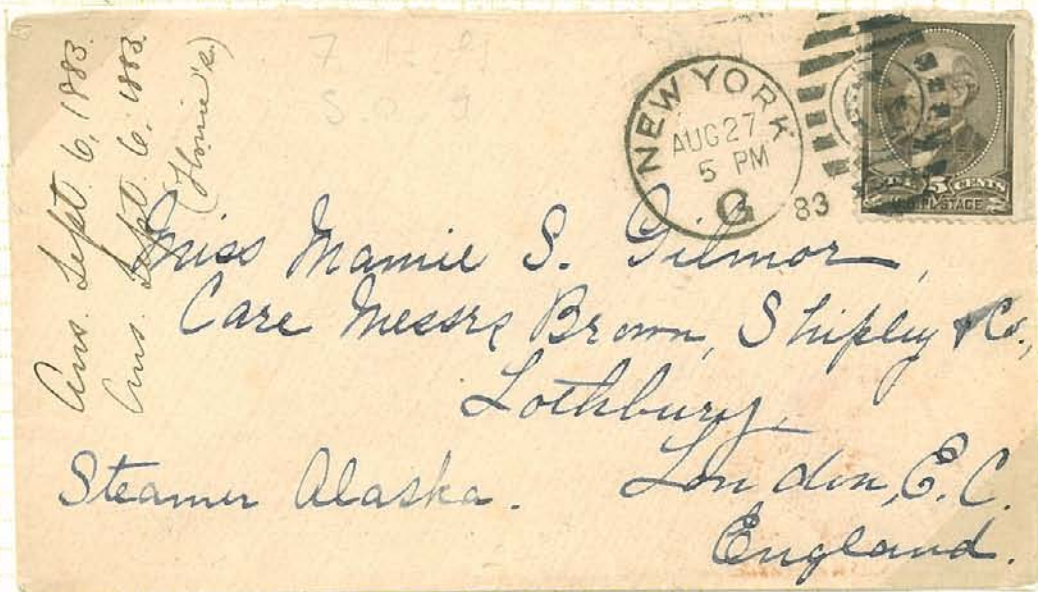 Ans. Sept. 6, 1883.
Ans. Sept. 6, 1883.
NEW YORK
AUG 27
5 PM
G
83
5 CENTS
POSTAGE
Miss Mamie S. Gilmor,
Care Messrs Brown, Shipley & Co.,
Lothbury
London, E.C.
Steamer Alaska.
England.